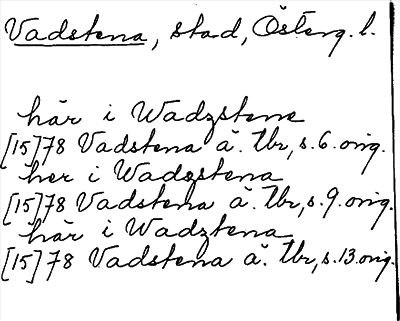 Vadstena, stad, Österg. l.
här i Wadzstene
[15]78 Vadstena ä. Tbr, s. 6. orig.
her i Wadzstena
[15]78 Vadstena ä. Tbr, s. 9. orig.
här i Wadztena
[15]78 Vadstena ä. Tbr, s. 13. orig.